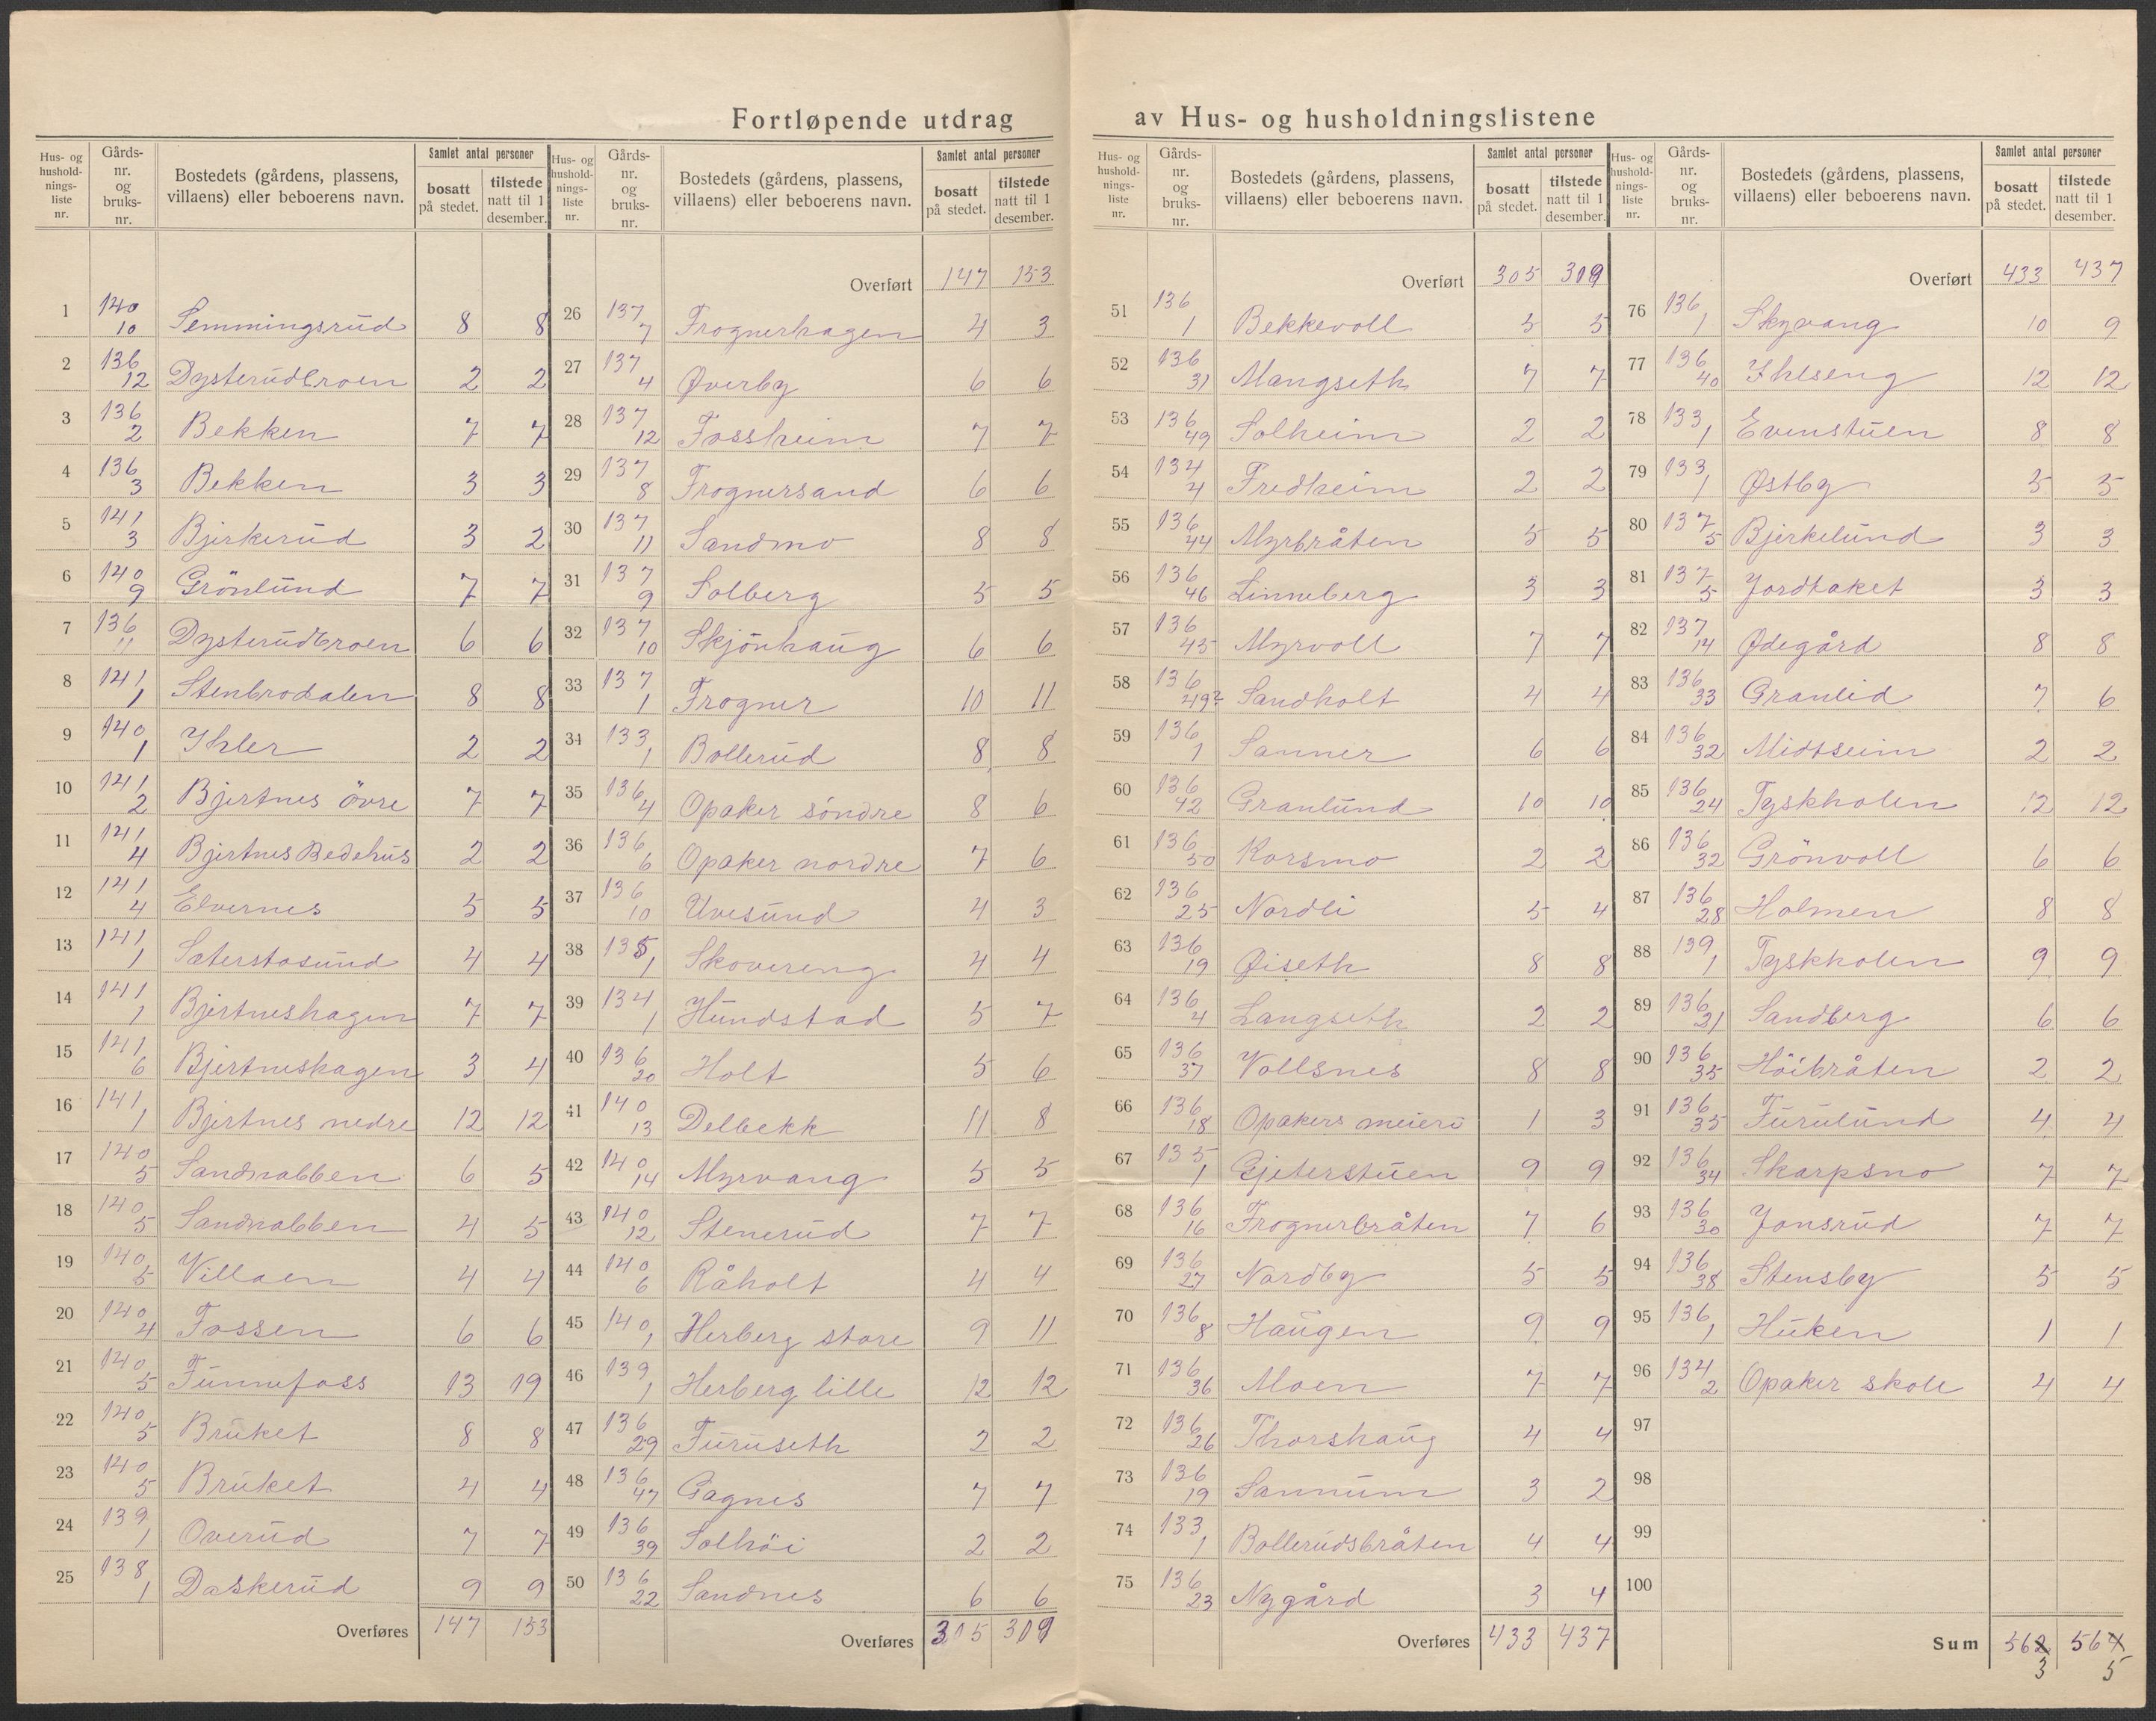 Fortløpende utdrag av Hus- og husholdningslistene
Hus- og husholdnings-liste nr. | Gårds-nr. og bruks-nr. | Bostedets (gårdens, plassens, villaens) eller beboerens navn. | Samlet antal personer | bosatt på stedet. | tilstede natt til 1 desember.
1 140 10 Semmingsrud 8 8
2 136 12 Dysterudbroen 2 2
3 136 2 Bekken 7 7
4 136 3 Bekken 3 3
5 141 3 Bjerkerud 3 2
6 140 9 Grönlund 7 7
7 136 11 Dysterudbroen 6 6
8 141 1 Stenbrodalen 8 8
9 140 1 Ihler 2 2
10 141 2 Bjertnes övre 7 7
11 141 4 Bjertnes Bedehus 2 2
12 141 4 Elvernes 5 5
13 141 1 Sæterstøsund 4 4
14 141 1 Bjertneshagen 7 7
15 141 6 Bjertneshagen 3 4
16 141 1 Bjertnes nedre 12 12
17 140 5 Sandnabben 6 5
18 140 5 Sandnabben 4 5
19 140 5 Villaen 4 4
20 140 4 Fossen 6 6
21 140 5 Funnefoss 13 19
22 140 5 Bruket 8 8
23 140 5 Bruket 4 4
24 139 1 Overud 7 7
25 138 1 Daskerud 9 9
Overføres 147 153
Hus- og husholdnings-liste nr. | Gårds-nr. og bruks-nr. | Bostedets (gårdens, plassens, villaens) eller beboerens navn. | Samlet antal personer | bosatt på stedet. | tilstede natt til 1 desember.
Overført 147 153
26 137 7 Frognerhagen 4 3
27 137 4 Øverby 6 6
28 137 12 Fossheim 7 7
29 137 8 Frognersand 6 6
30 137 11 Sandmo 8 8
31 137 9 Solberg 5 5
32 137 10 Skjönhaug 6 6
33 137 1 Frogner 10 11
34 133 1 Bollerud 8 8
35 136 4 Opaker söndre 8 6
36 136 6 Opaker nordre 7 6
37 136 10 Uvesund 4 3
38 135 1 Skovereng 4 4
39 134 1 Hundstad 5 7
40 136 20 Holt 5 6
41 140 13 Delbekk 11 8
42 140 14 Myrvang 5 5
43 140 12 Stenerud 7 7
44 140 6 Råholt 4 4
45 140 1 Herberg store 9 11
46 139 1 Herberg lille 12 12
47 136 29 Furuseth 2 2
48 136 47 Gagnes 7 7
49 136 39 Solhöi 2 2
50 136 22 Sandnes 6 6
Overføres 305 309
Hus- og husholdnings-liste nr. | Gårds-nr. og bruks-nr. | Bostedets (gårdens, plassens, villaens) eller beboerens navn. | Samlet antal personer | bosatt på stedet. | tilstede natt til 1 desember.
Overført 305 309
51 136 1 Bekkevoll 5 5
52 136 31 Mangseth 7 7
53 136 49 Solheim 2 2
54 134 4 Fredheim 2 2
55 136 44 Myrbråten 5 5
56 136 46 Linneberg 3 3
57 136 45 Myrvoll 7 7
58 136 49² Sandholt 4 4
59 136 1 Sanner 6 6
60 136 42 Granlund 10 10
61 136 50 Korsmo 2 2
62 136 25 Nordli 5 4
63 136 19 Øiseth 8 8
64 136 4 Langseth 2 2
65 136 37 Vollsnes 8 8
66 136 18 Opakers meieri 1 3
67 135 1 Gjeterstuen 9 9
68 136 16 Frognerbråten 7 6
69 136 27 Nordby 5 5
70 136 8 Haugen 9 9
71 136 36 Moen 7 7
72 136 26 Thorshaug 4 4
73 136 19 Sannum 3 2
74 133 1 Bollerudsbråten 4 4
75 136 23 Nygård 3 4
Overføres 433 437
Hus- og husholdnings-liste nr. | Gårds-nr. og bruks-nr. | Bostedets (gårdens, plassens, villaens) eller beboerens navn. | Samlet antal personer | bosatt på stedet. | tilstede natt til 1 desember.
Overført 433 437
76 136 1 Skyvang 10 9
77 136 40 Ihlseng 12 12
78 133 1 Evenstuen 8 8
79 133 1 Østby 5 5
80 137 5 Bjerkelund 3 3
81 137 5 Jordtaket 3 3
82 137 14 Ødegård 8 8
83 136 33 Granlid 7 6
84 136 32 Midtseim 2 2
85 136 24 Tyskholen 12 12
86 136 32 Grönvoll 6 6
87 136 28 Holmen 8 8
88 139 1 Tyskholen 9 9
89 136 21 Sandberg 6 6
90 136 35 Höibråten 2 2
91 136 35 Furulund 4 4
92 136 34 Skarpsno 7 7
93 136 30 Jonsrud 7 7
94 136 38 Stensby 5 5
95 136 1 Huken 1 1
96 134 2 Opaker skole 4 4
97
98
99
100
Sum 562 564
3 5